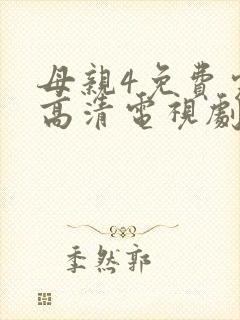 母親4免費
高清電視劇
季然郭